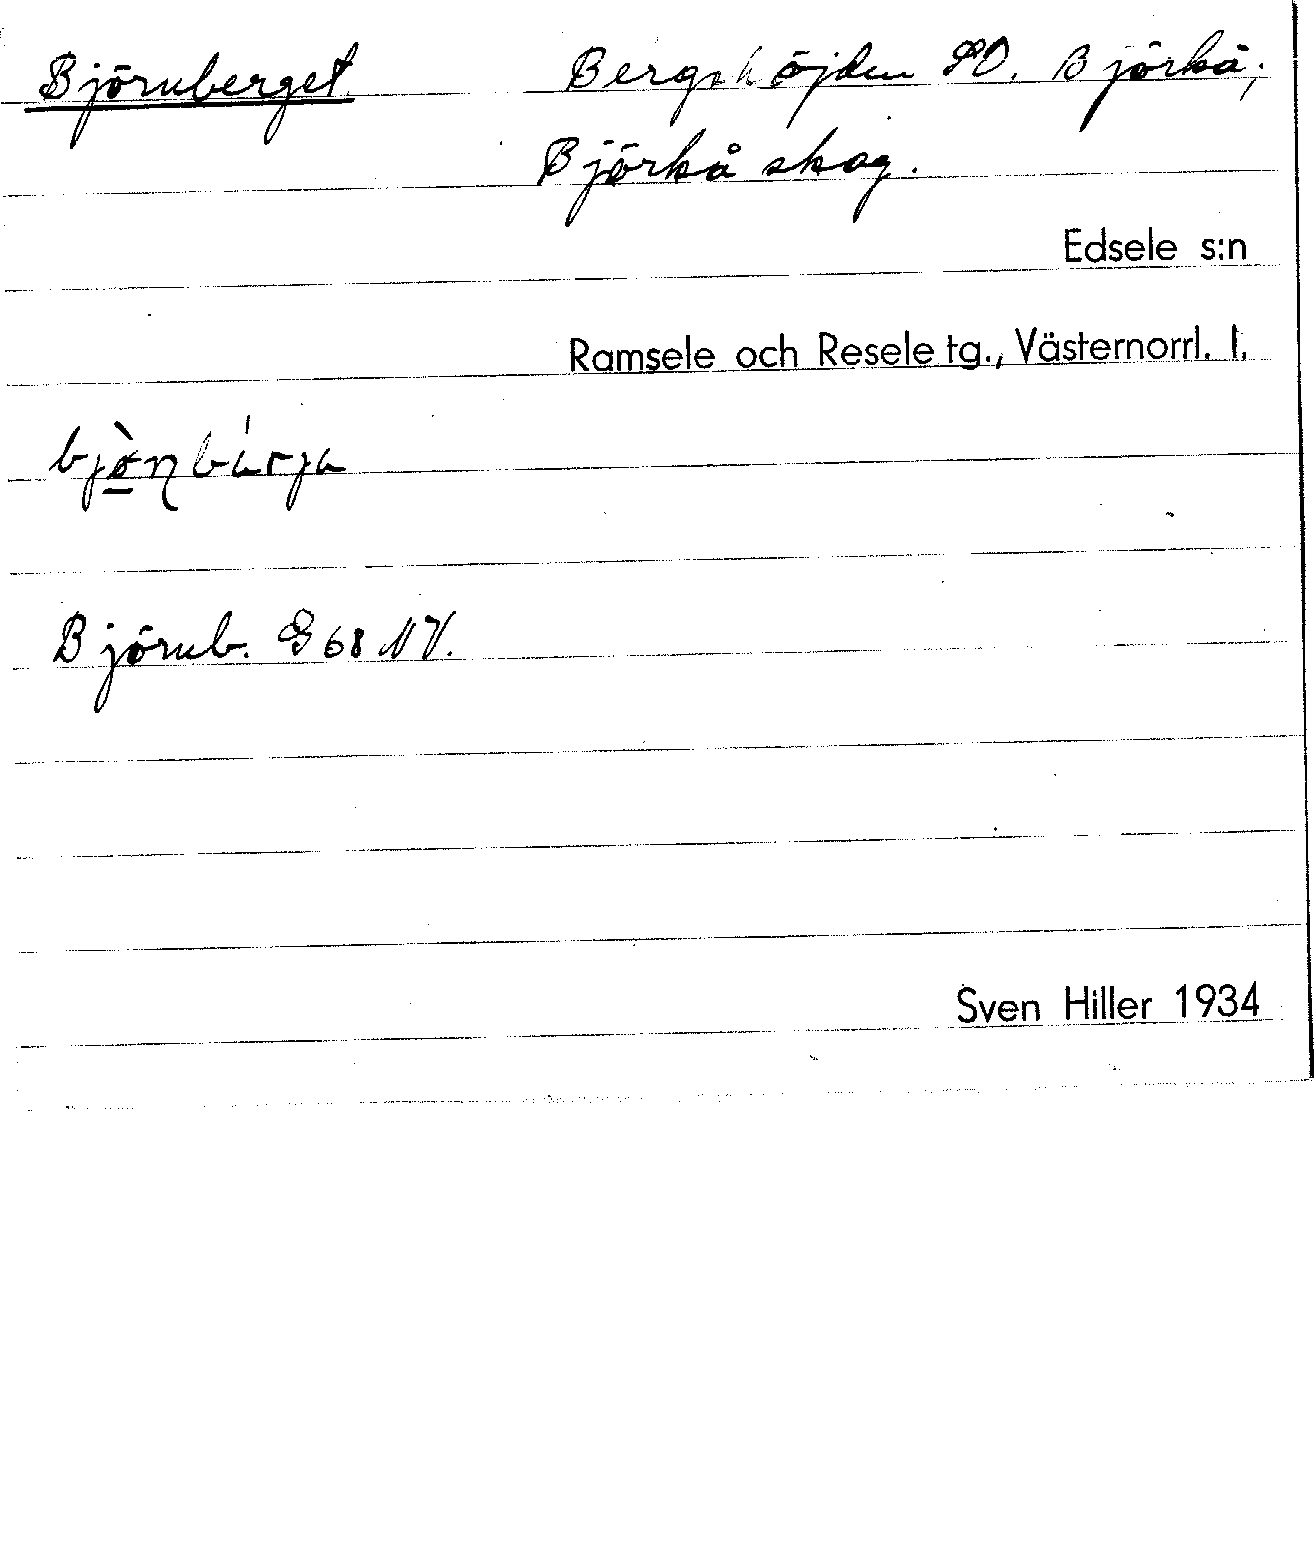 Björnberget. Bergshöjden SO. Björkå;
Björkå skog.
Edsele s:n
Ramsele och Resele tg., Västernorrl. l.
Björnb. G 68 NV.
Sven Hiller 1934